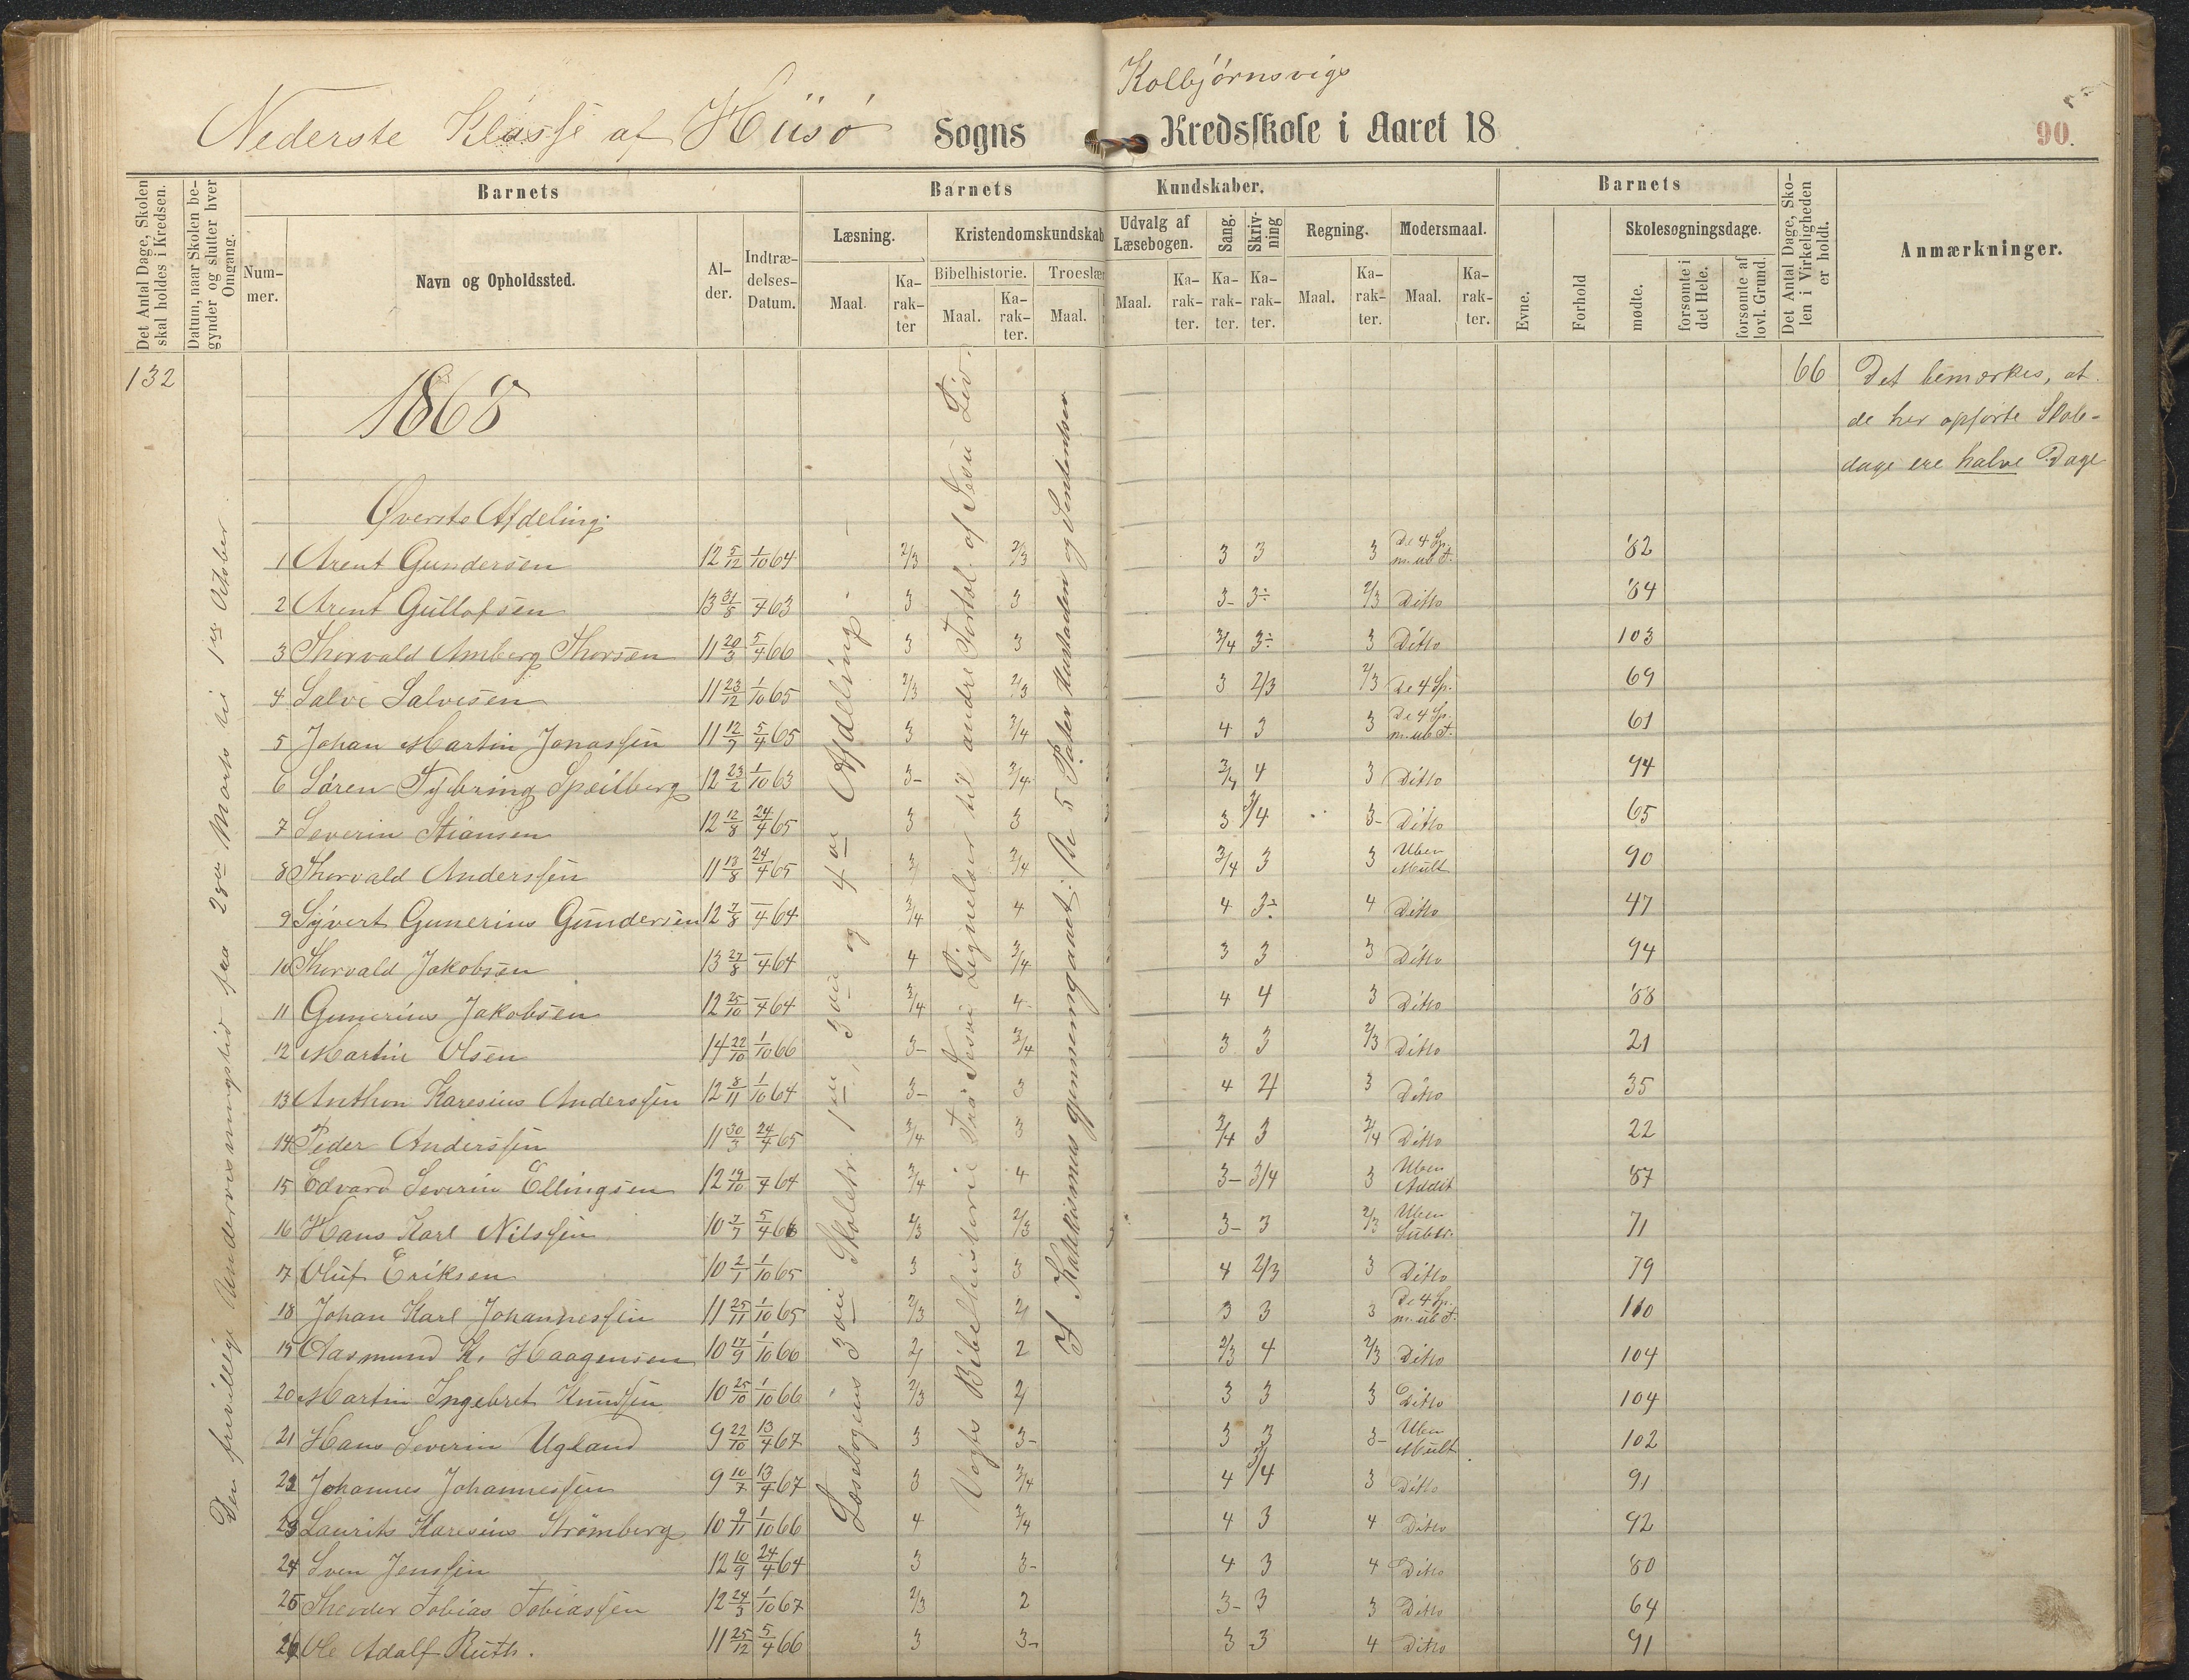 Kolbjørnsvigs
Nederste Klasse af Hiisø Sogns Kredsskole i Aaret 18
90.
Det Antal Dage, Skolen skal holdes i Kredsen.
Datum, naar Skolen begynder og slutter hver Omgang.
Barnets
Nummer.
Navn og Opholdssted.
Alder.
Indtrædelses-Datum.
Barnets Kundskaber.
Læsning.
Maal.
Karakter
Kristendomskundskab
Bibelhistorie.
Maal.
Karakter.
Troeslær
Maal.
Udvalg af Læsebogen.
Maal.
Karakter.
Sang.
Karakter.
Skrivning
Karakter.
Regning.
Maal.
Karakter.
Modersmaal.
Maal.
Karakter.
Barnets
Evne.
Forhold
Skolesøgningsdage.
mødte.
forsømte i det Hele.
forsømte af lovl. Grund.
Det Antal Dage, Skolen i Virkeligheden er holdt.
Anmærkninger.
132
1868
66
Det bemærkes, at
de her opførte Skole-
dage ere halve Dage
Den frivillige Undervisningstid fra 28de Marts til 1ste October
Læsebogens 3die Skoletr. 1ste, 3die og 4de Afdeling.
Vogts Bibelhistorie Fra Jesu Lignelser til andre Fortæl. af Jesu Liv.
I Katekismus gjennemgaaet: De 5 Parter Hustavlen og Sententser
Øverste Afdeling.
1 Arent Gundersen 12 5/12 1/10 64 2/3 2/3 3 3 3 De 4 Sp. m. ub. T. 82
2 Arent Gullofsen 13 31/8 –/4 63 3 3 3- 3÷ 2/3 Ditto 84
3 Thorvald Amberg Thorsen 11 20/3 5/4 66 3 3 3/4 3÷ 3 Ditto 103
4 Salve Salvesen 11 23/12 1/10 65 2/3 2/3 3 2/3 2/3 De 4 Sp. 69
5 Johan Martin Jonassen 11 12/7 5/4 65 3 3/4 4 3 3 De 4 Sp. m. ub. T. 61
6 Søren Tybring Speilberg 12 23/2 1/10 63 3- 3/4 3/4 4 3 Ditto 94
7 Severin Stiansen 12 12/8 24/4 65 3 3 3 3/4 3- Ditto 65
8 Thorvald Anderssen 11 13/8 24/4 65 3 3/4 3/4 3 3 Uben Mult 90
9 Syvert Gunerius Gundersen 12 7/8 –/4 64 3/4 4 4 3÷ 4 Ditto 47
10 Thorvald Jakobsen 13 27/8 –/4 64 4 3/4 3 3 3 Ditto 94
11 Gunerius Jakobsen 12 25/10 –/4 64 3/4 4- 4 4 3 Ditto 88
12 Martin Olsen 14 22/10 1/10 66 3- 3/4 3 3 2/3 Ditto 21
13 Anthon Karesius Anderssen 12 8/11 1/10 64 3- 3 4 4 3 Ditto 35
14 Peder Anderssen 11 30/3 24/4 65 3/4 3 3/4 3 3/4 Ditto 22
15 Edvard Severin Ellingsen 12 19/10 –/4 64 3/4 4 3- 3/4 3 Uben Addit 87
16 Hans Karl Nilssen 10 7/7 5/4 66 2/3 2/3 3- 3 2/3 Uben Subtr. 71
17 Oluf Eriksen 10 2/1 1/10 65 3 3 4 2/3 3 Ditto 79
18 Johan Karl Johannessen 11 25/11 1/10 65 2/3 2 3 3 3 De 4 Sp. m. ub. T. 110
19 Aasmund K. Haagensen 10 17/9 1/10 66 2 2 2/3 4 2/3 Ditto 104
20 Martin Ingebret Knudsen 10 25/10 1/10 66 2/3 2 3 3 3 Ditto 104
21 Hans Severin Ugland 9 22/10 13/4 67 3 3- 3 3 3- Uben Mult 102
22 Johannes Johannessen 9 10/7 13/4 67 3 3/4 4 3/4 3 Ditto 91
23 Laurits Karesius Strømberg 10 9/11 1/10 66 4 3/4 4 3 4 Ditto 92
24 Sven Jenssen 12 10/9 24/4 64 3 3- 4 3 4 Ditto 80
25 Theodor Tobias Tobiassen 12 24/3 1/10 67 2/3 2 3- 3 3 Ditto 64
26 Ole Adolf Ruth. 11 25/12 5/4 66 3 3- 3 3 4 Ditto 91